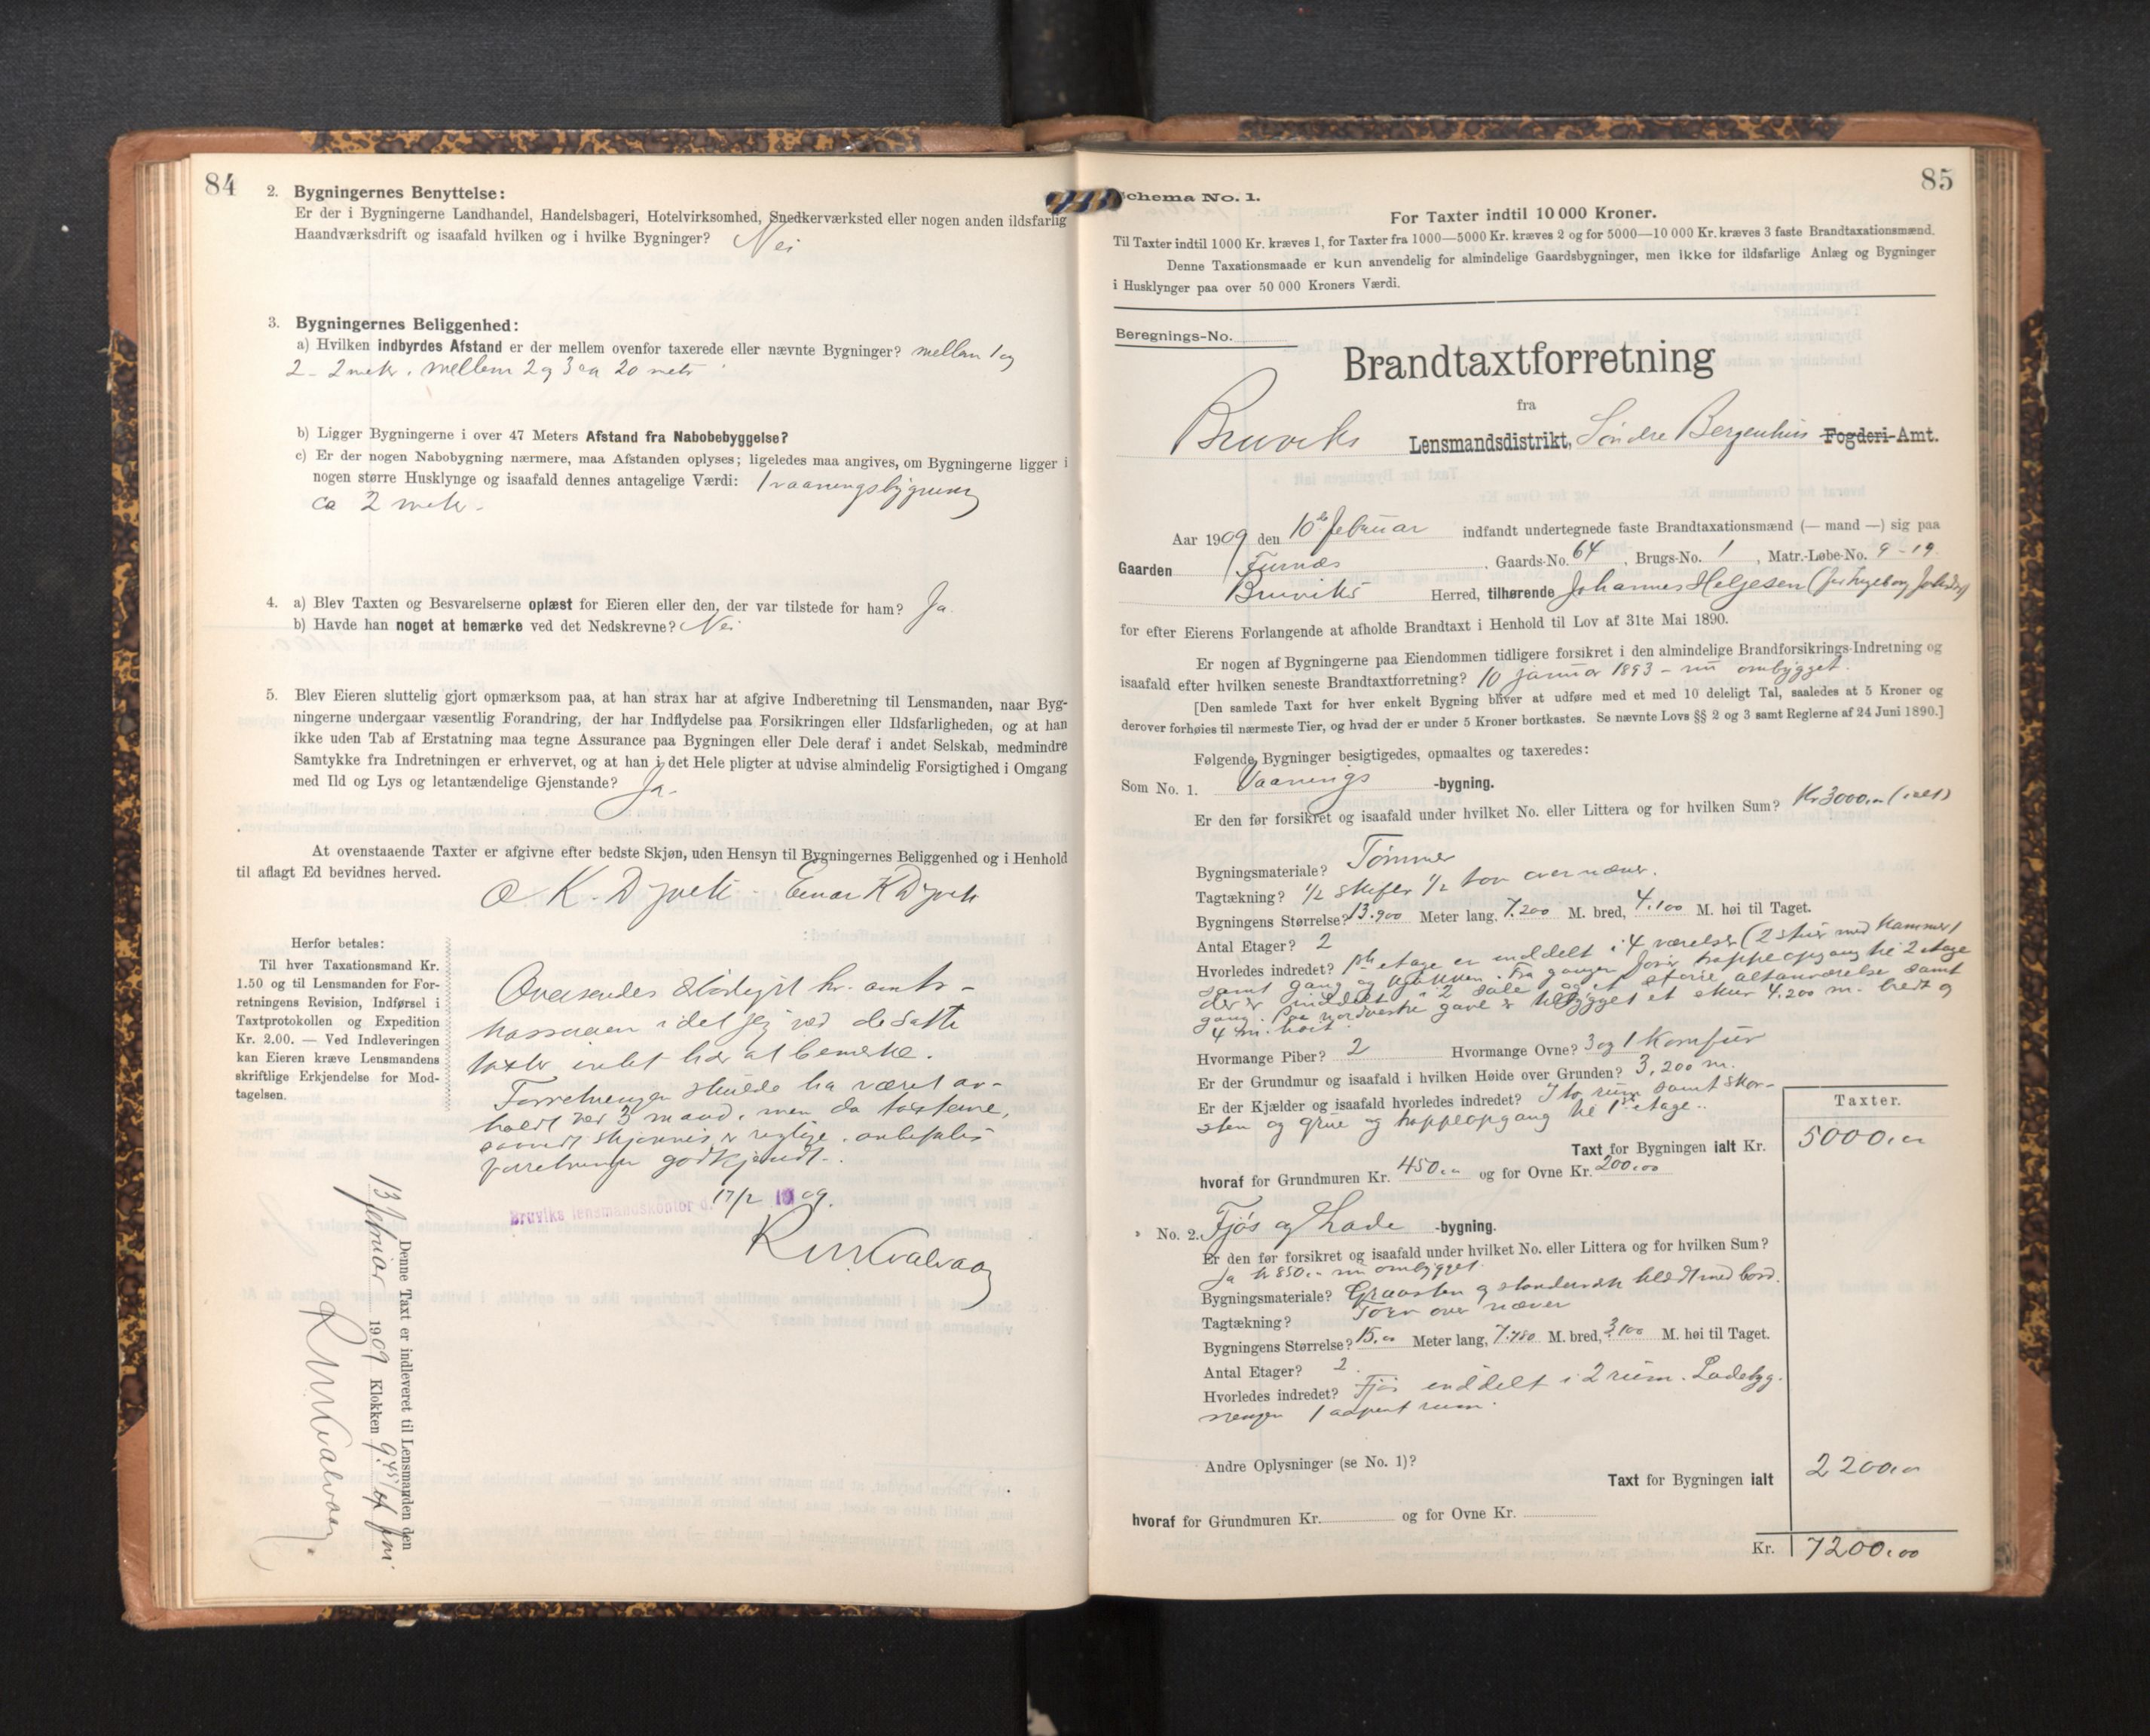 84
2. Bygningernes Benyttelse:
Er der i Bygningerne Landhandel, Handelsbageri, Hotelvirksomhed, Snedkerværksted eller nogen anden ildsfarlig
Haandværksdrift og isaafald hvilken og i hvilke Bygninger? Nei
3. Bygningernes Beliggenhed:
a) Hvilken indbyrdes Afstand er der mellem ovenfor taxerede eller nævnte Bygninger? mellem 1 og
2 - 2 meter. mellem 2 og 3 ca 20 meter
b) Ligger Bygningerne i over 47 Meters Afstand fra Nabobebyggelse?
c) Er der nogen Nabobygning nærmere, maa Afstanden oplyses; ligeledes maa angives, om Bygningerne ligger i
nogen større Husklynge og isaafald dennes antagelige Værdi: 1 vaaningsbygning
ca 2 meter.
4. a) Blev Taxten og Besvarelserne oplæst for Eieren eller den, der var tilstede for ham? Ja.
b) Havde han noget at bemærke ved det Nedskrevne? Nei
5. Blev Eieren sluttelig gjort opmærksom paa, at han strax har at afgive Indberetning til Lensmanden, naar Byg-
ningerne undergaar væsentlig Forandring, der har Indflydelse paa Forsikringen eller Ildsfarligheden, og at han
ikke uden Tab af Erstatning maa tegne Assurance paa Bygningen eller Dele deraf i andet Selskab, medmindre
Samtykke fra Indretningen er erhvervet, og at han i det Hele pligter at udvise almindelig Forsigtighed i Omgang
med Ild og Lys og letantændelige Gjenstande? Ja.
At ovenstaaende Taxter er afgivne efter bedste Skjøn, uden Hensyn til Bygningernes Beliggenhed og i Henhold
til aflagt Ed bevidnes herved.
O. K. Dyvik. Einar K Dyvik
Herfor betales:
Til hver Taxationsmand Kr.
1.50 og til Lensmanden for For-
retningens Revision, Indførsel i
Taxtprotokollen og Expedition
Kr. 2.00. — Ved Indleveringen
kan Eieren kræve Lensmandens
skriftlige Erkjendelse for Mod-
tagelsen.
Oversendes hr. amts-
kassereren idet jeg ved de satte
taxter intet har at bemerke.
Forretningen skulde ha været av-
holdt ved 3 mand, men da taxterne,
er rigtige, anbefales
forretningen godkjendt.
Bruviks lensmandskontor d. 17/2 1909.
R M Kvalvaag
Denne Taxt er indleveret til Lensmanden den
13 februar 1909 Klokken 9.45 ef fm.
R M Kvalvaag.
85
Schema No. 1.
For Taxter indtil 10 000 Kroner.
Til Taxter indtil 1000 Kr. kræves 1, for Taxter fra 1000—5000 Kr. kræves 2 og for 5000—10 000 Kr. kræves 3 faste Brandtaxationsmænd.
Denne Taxationsmaade er kun anvendelig for almindelige Gaardsbygninger, men ikke for ildsfarlige Anlæg og Bygninger
i Husklynger paa over 50 000 Kroners Værdi.
Beregnings-No.
Brandtaxtforretning
fra
Bruviks Lensmandsdistrikt, Søndre Bergenhus Fogderi-Amt.
Aar 1909 den 10de februar indfandt undertegnede faste Brandtaxationsmænd (— mand —) sig paa
Gaarden Furnæs, Gaards-No. 64, Brugs-No. 1, Matr.-Løbe-No. 9 - 19.
Bruviks Herred, tilhørende Johannes Helgesen (for Ingeborg
for efter Eierens Forlangende at afholde Brandtaxt i Henhold til Lov af 31te Mai 1890.
Er nogen af Bygningerne paa Eiendommen tidligere forsikret i den almindelige Brandforsikrings-Indretning og
isaafald efter hvilken seneste Brandtaxtforretning? 10 januar 1893 - nu ombygget.
[Den samlede Taxt for hver enkelt Bygning bliver at udføre med et med 10 deleligt Tal, saaledes at 5 Kroner og
derover forhøies til nærmeste Tier, og hvad der er under 5 Kroner bortkastes. Se nævnte Lovs §§ 2 og 3 samt Reglerne af 24 Juni 1890.]
Følgende Bygninger besigtigedes, opmaaltes og taxeredes:
Som No. 1. Vaanings -bygning.
Er den før forsikret og isaafald under hvilket No. eller Littera og for hvilken Sum? Kr 3000,00 (ialt)
Bygningsmateriale? Tømmer
Tagtækning? 1/2 skifer 1/2 torv over næver.
Bygningens Størrelse? 13.900 Meter lang, 7.200 M. bred, 4.100 M. høi til Taget.
Antal Etager? 2
Hvorledes indredet? 1ste etage er inddelt i 4 værelser (2 stuer med kammer)
samt gang og kjøkken. Fra gangen fører trappeopgang til 2 etage
der er inddelt i 2 sale og et større altanværelse samt
gang. Paa nordvestre gavl er tilbygget et skur 4.200 m. bredt og
4 m. høit.
Hvormange Piber? 2 Hvormange Ovne? 3 og 1 Komfur
Er der Grundmur og isaafald i hvilken Høide over Grunden? 3,200 m.
Er der Kjælder og isaafald hvorledes indredet? I to rum samt skor-
sten og grue og trappeopgang til 1ste etage.
Taxter.
Taxt for Bygningen ialt Kr. 5000,00
hvoraf for Grundmuren Kr. 450,00 og for Ovne Kr. 200,00
" No. 2. Fjøs og Lade -bygning.
Er den før forsikret og isaafald under hvilket No. eller Littera og for hvilken Sum?
Ja kr 850,- nu ombygget.
Bygningsmateriale? Graasten og standerværk klædt med bord.
Tagtækning? Torv over næver
Bygningens Størrelse? 15,00 Meter lang, 7.780 M. bred, 3.100 M. høi til Taget.
Antal Etager? 2.
Hvorledes indredet? Fjøs inddelt i 2 rum. Ladebyg-
ningen 1 aapent rum.
Andre Oplysninger (se No. 1)?
Taxt for Bygningen ialt 2200,00
hvoraf for Grundmuren Kr. og for Ovne Kr.
Kr. 7200,00